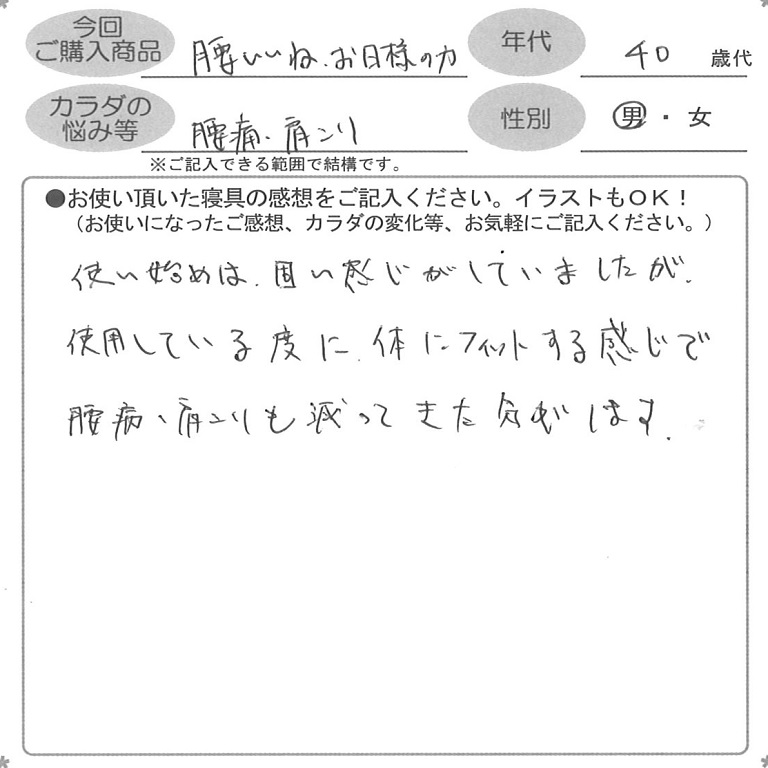 今回
ご購入商品
腰いいね、お日様の力
年代
40 歳代
カラダの
悩み等
腰痛、肩こり
性別
男・女
※ご記入できる範囲で結構です。
●お使い頂いた寝具の感想をご記入ください。イラストもOK！
（お使いになったご感想、カラダの変化等、お気軽にご記入ください。）
使い始めは、固い感じがしていましたが、
使用している度に、体にフィットする感じで
腰痛、肩こりも減ってきた気がします。